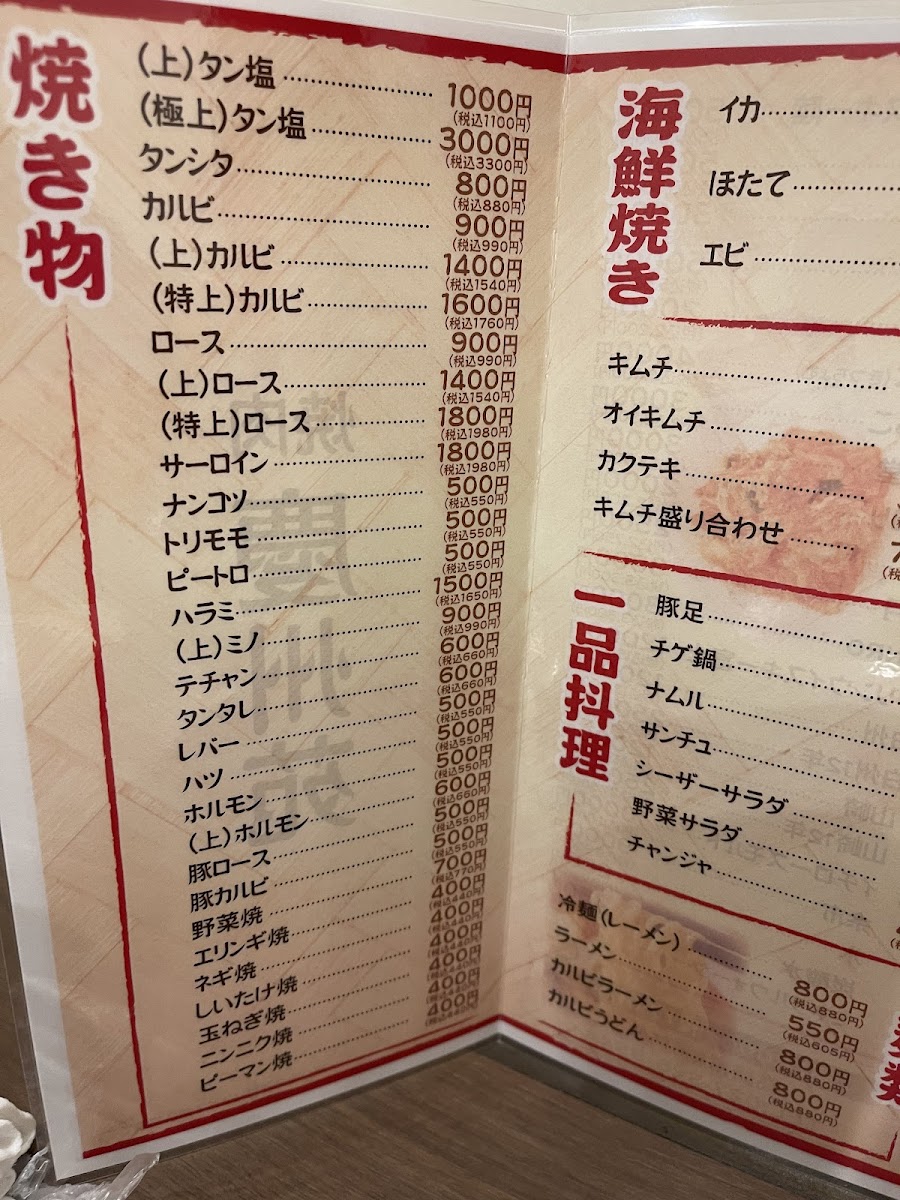 焼き物
(上)タン塩 1000円
(税込1100円)
(極上)タン塩 3000円
(税込3300円)
タンシタ 800円
(税込880円)
カルビ 900円
(税込990円)
(上)カルビ 1400円
(税込1540円)
(特上)カルビ 1600円
(税込1760円)
ロース 900円
(税込990円)
(上)ロース 1400円
(税込1540円)
(特上)ロース 1800円
(税込1980円)
サーロイン 1800円
(税込1980円)
ナンコツ 500円
(税込550円)
トリモモ 500円
(税込550円)
ピートロ 500円
(税込550円)
ハラミ 1500円
(税込1650円)
(上)ミノ 900円
(税込990円)
テチャン 600円
(税込660円)
タンタレ 600円
(税込660円)
レバー 500円
(税込550円)
ハツ 500円
(税込550円)
ホルモン 500円
(税込550円)
(上)ホルモン 600円
(税込660円)
豚ロース 500円
(税込550円)
豚カルビ 500円
(税込550円)
野菜焼 700円
(税込770円)
エリンギ焼 400円
(税込440円)
ネギ焼 400円
(税込440円)
しいたけ焼 400円
(税込440円)
玉ねぎ焼 400円
(税込440円)
ニンニク焼 400円
(税込440円)
ピーマン焼 400円
(税込440円)
海鮮焼き
イカ
ほたて
エビ
キムチ
オイキムチ
カクテキ
キムチ盛り合わせ
一品料理
豚足
チゲ鍋
ナムル
サンチュ
シーザーサラダ
野菜サラダ
チャンジャ
冷麺(レーメン) 800円
(税込880円)
ラーメン 550円
(税込605円)
カルビラーメン 800円
(税込880円)
カルビうどん 800円
(税込880円)